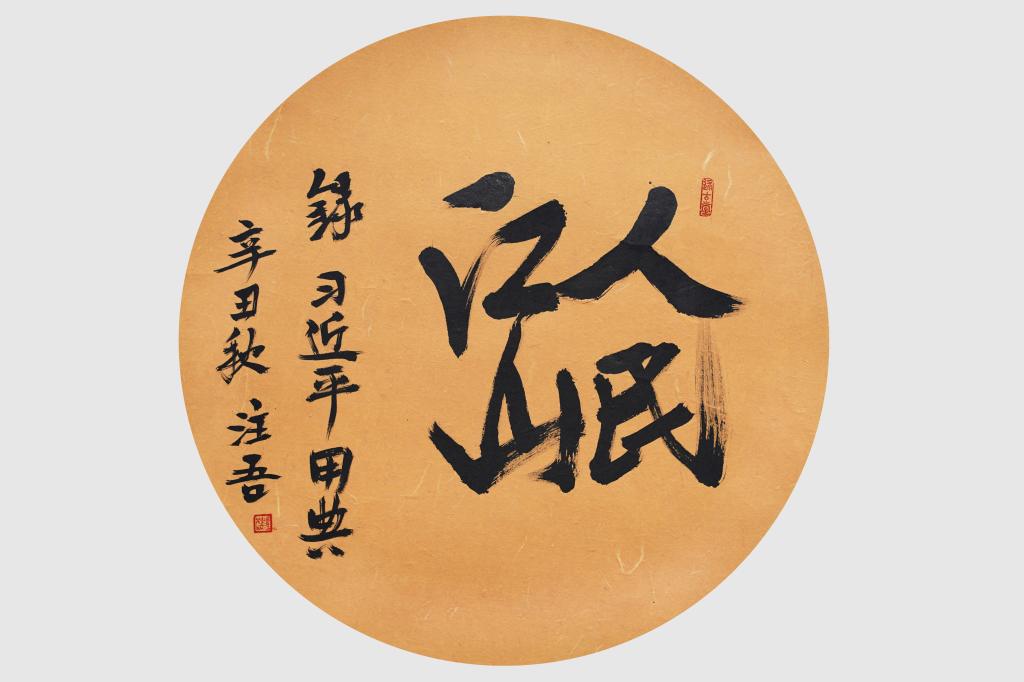 人民
江山
録 习近平 用典
辛丑秋 注吾